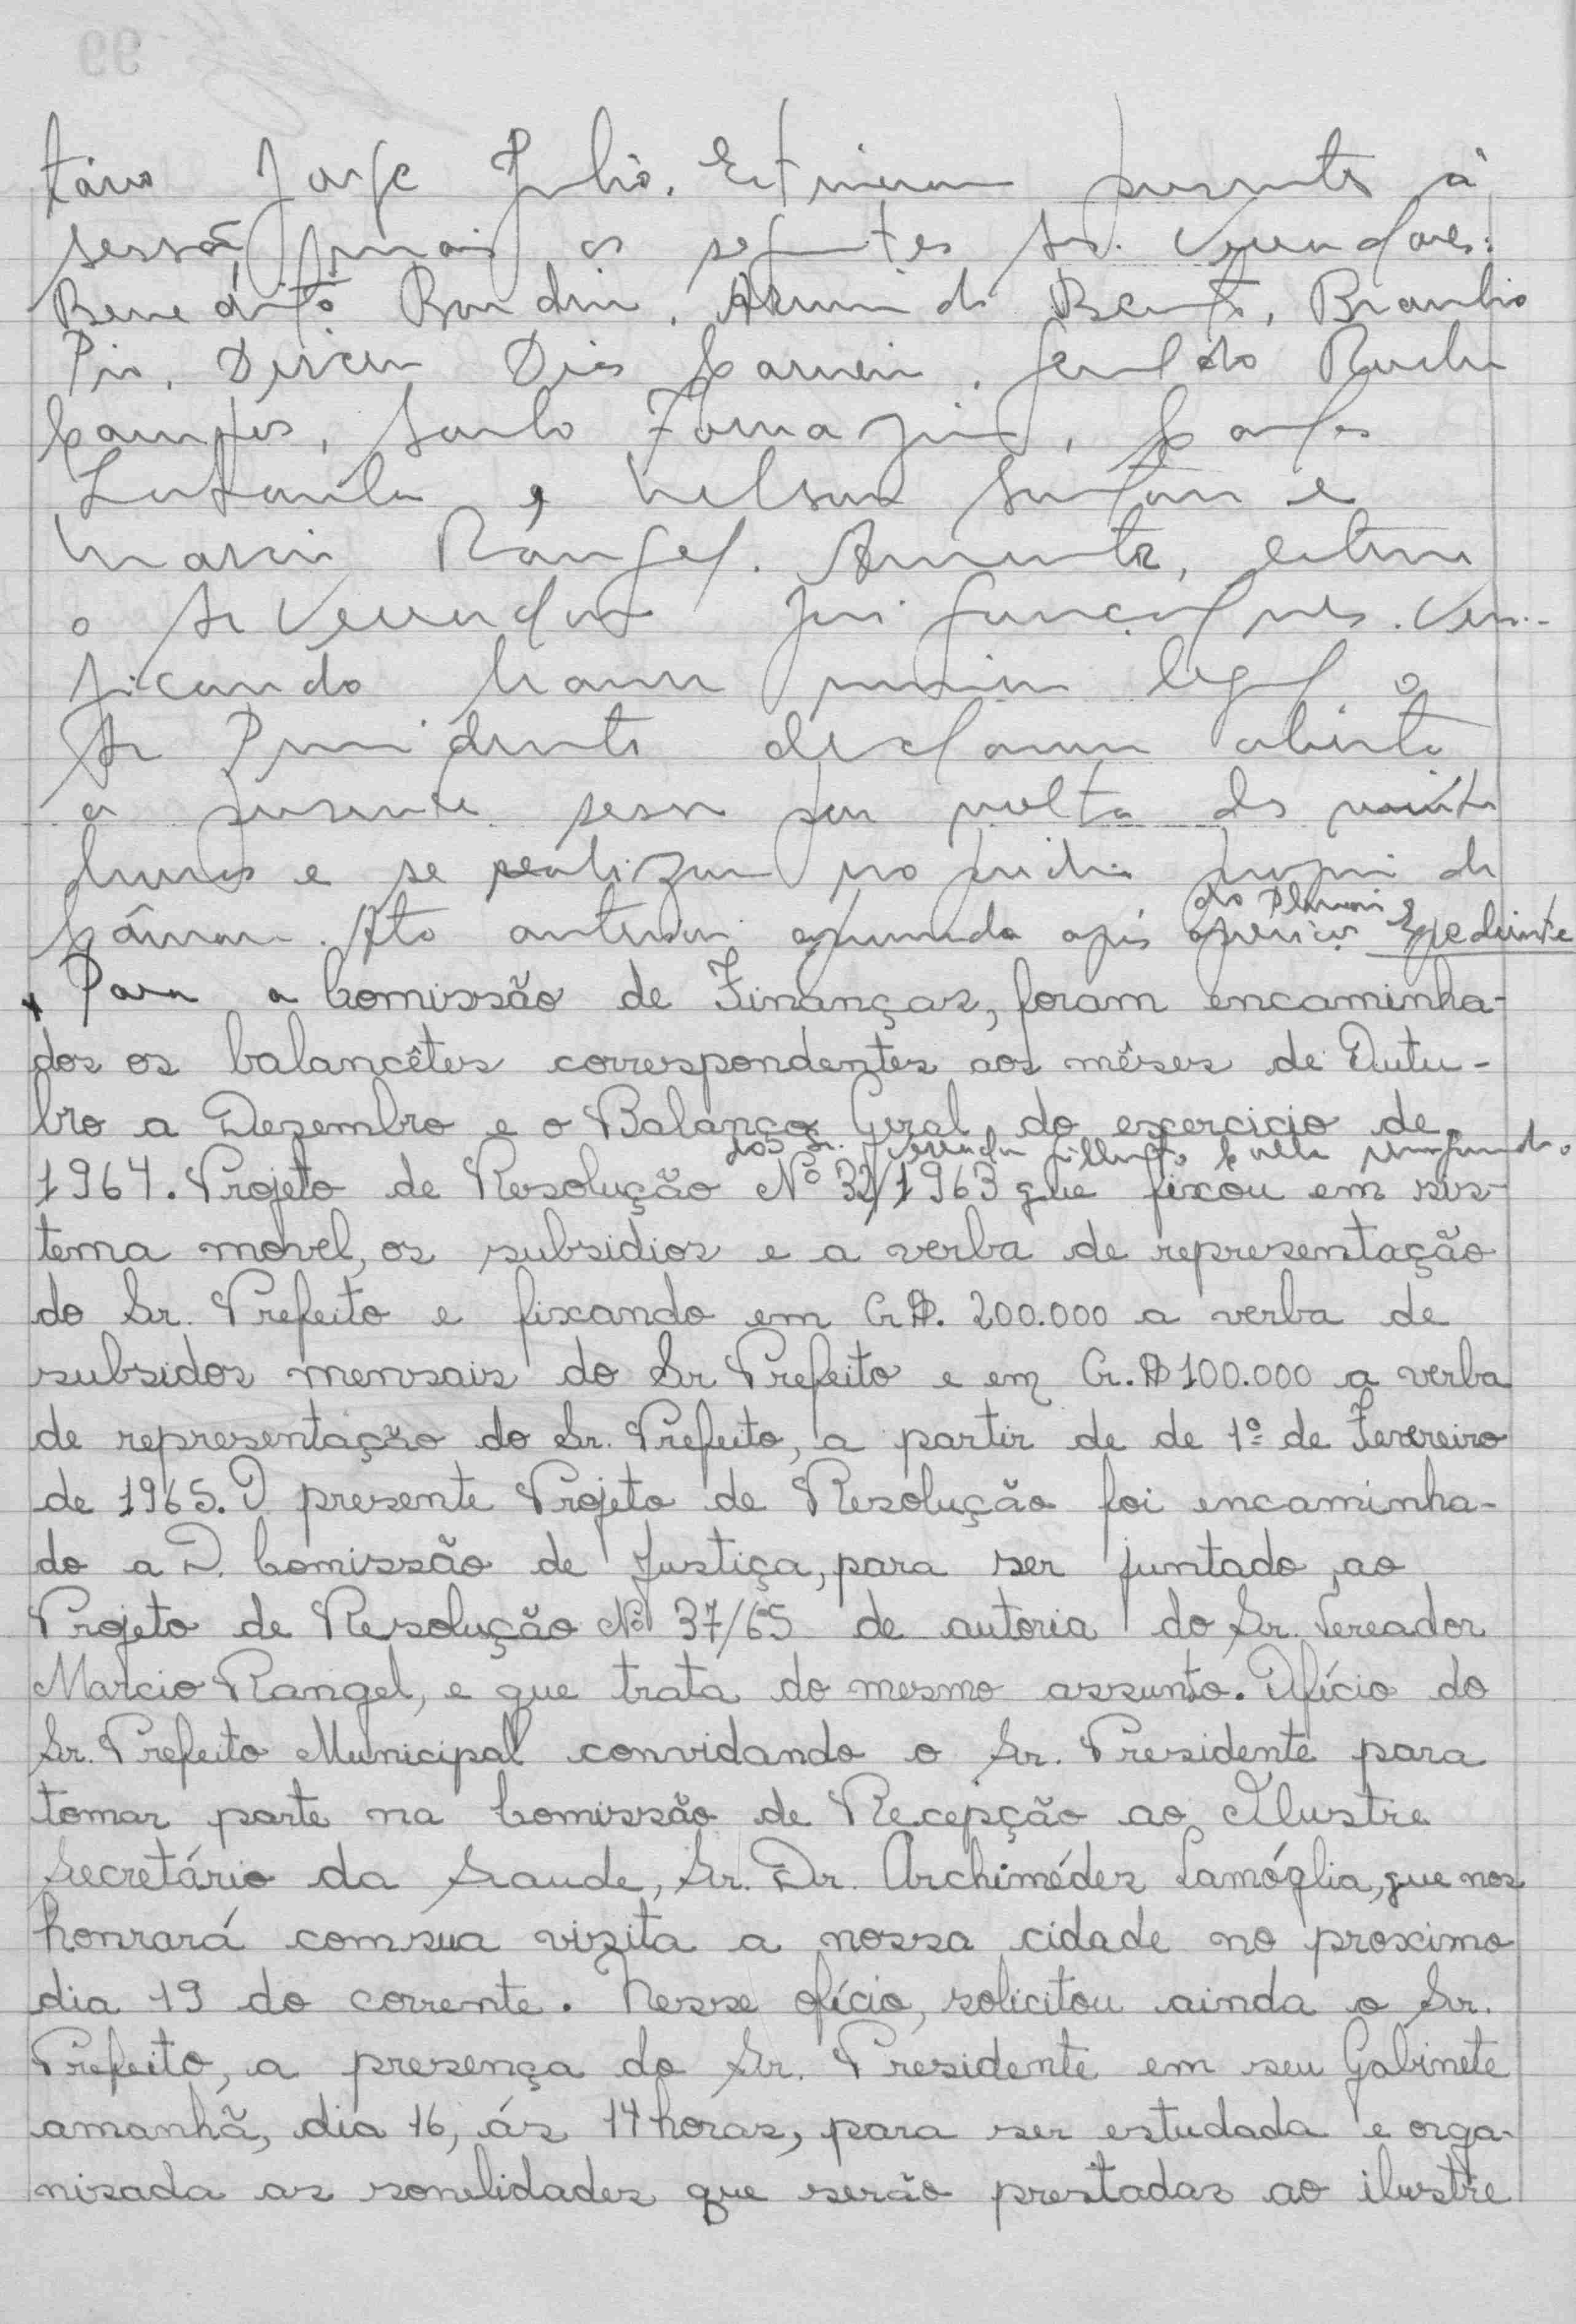 tário Jorge Julio. Estiveram presentes à
sessão mais os seguintes Srs. Vereadores:
Benedito Bondin, Armindo Bento, Braulio
Pio, Dirceu Dias Carneiro, Geraldo Rocha
Campos, Saulo Fornazin, Carlos
e Nelson e
Marcio Rangel. Ausente, esteve
o Sr Vereador Gonçalves. Veri-
ficando haver numero legal o
Sr Presidente declarou aberta
a presente sessão por volta das vinte
horas e se realizou no predio proprio da
Câmara. Ata anterior aprovada após
do Plenario e Expediente
Para a Comissão de Finanças, foram encaminha-
dos os balancêtes correspondentes aos mêses de Outu-
bro a Dezembro e o Balanço Geral do exercicio de
do Sr. Vereador
1964. Projeto de Resolução Nº 32/1963 que fixou em sis-
tema movel, os subsidios e a verba de representação
do Sr. Prefeito e fixando em Cr$. 200.000 a verba de
subsidos mensais do Sr Prefeito e em Cr.$ 100.000 a verba
de representação do Sr. Prefeito, a partir de de 1º de Fevereiro
de 1965. O presente Projeto de Resolução foi encaminha-
do a D. Comissão de Justiça, para ser juntado ao
Projeto de Resolução Nº 37/65 de autoria do Sr. Vereador
Marcio Rangel, e que trata do mesmo assunto. Ofício do
Sr. Prefeito Municipal convidando o Sr. Presidente para
tomar parte na Comissão de Recepção ao Ilustre
Secretário da Saude, Sr. Dr. Archimédes Lamóglia, que nos
honrará com sua vizita a nossa cidade no proximo
dia 19 do corrente. Nesse ofício, solicitou ainda o Sr.
Prefeito, a presença do Sr. Presidente em seu Gabinete
amanhã, dia 16, ás 14 horas, para ser estudada e orga-
nisada as sonelidades que serão prestadas ao ilustre